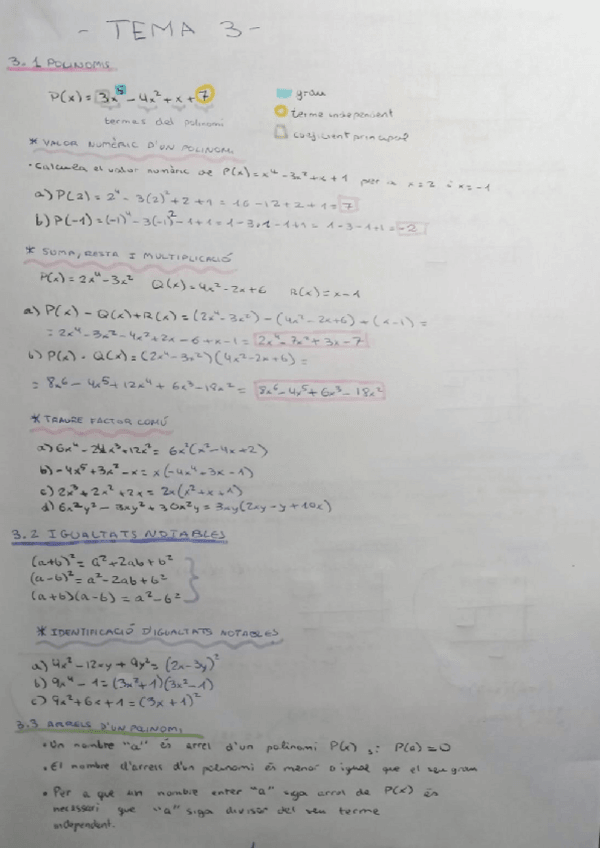 - TEMA 3 -
3.1 POLINOMIS
P(x) = 3x⁵ - 4x² + x + 7
grau
terme independent
coeficient principal
termes del polinomi
* VALOR NUMÈRIC D'UN POLINOMI
• Calcula el valor numèric de P(x) = x⁴ - 3x² + x + 1 per a x = 2 i x = -1
a) P(2) = 2⁴ - 3(2)² + 2 + 1 = 16 - 12 + 2 + 1 = 7
b) P(-1) = (-1)⁴ - 3(-1)² - 1 + 1 = 1 - 3·1 - 1 + 1 = 1 - 3 - 1 + 1 = -2
* SUMA, RESTA I MULTIPLICACIÓ
P(x) = 2x⁴ - 3x² Q(x) = 4x² - 2x + 6 R(x) = x - 1
a) P(x) - Q(x) + R(x) = (2x⁴ - 3x²) - (4x² - 2x + 6) + (x - 1) =
= 2x⁴ - 3x² - 4x² + 2x - 6 + x - 1 = 2x⁴ - 7x² + 3x - 7
b) P(x) · Q(x) = (2x⁴ - 3x²)(4x² - 2x + 6) =
= 8x⁶ - 4x⁵ + 12x⁴ + 6x³ - 18x² = 8x⁶ - 4x⁵ + 6x³ - 18x²
* TRAURE FACTOR COMÚ
a) 6x⁴ - 24x³ + 12x² = 6x²(x² - 4x + 2)
b) -4x⁵ + 3x² - x = x(-4x⁴ - 3x - 1)
c) 2x³ + 2x² + 2x = 2x(x² + x + 1)
d) 6x²y² - 3xy² + 30x²y = 3xy(2xy - y + 10x)
3.2 IGUALTATS NOTABLES
(a+b)² = a² + 2ab + b²
(a-b)² = a² - 2ab + b²
(a+b)(a-b) = a² - b²
* IDENTIFICACIÓ D'IGUALTATS NOTABLES
a) 4x² - 12xy + 9y² = (2x - 3y)²
b) 9x⁴ - 1 = (3x² + 1)(3x² - 1)
c) 9x² + 6x + 1 = (3x + 1)²
3.3 ARRELS D'UN POLINOMI
• Un nombre "a" és arrel d'un polinomi P(x) si P(a) = 0
• El nombre d'arrels d'un polinomi és menor o igual que el seu grau
• Per a que un nombre enter "a" siga arrel de P(x) és
necessari que "a" siga divisor del seu terme
independent.